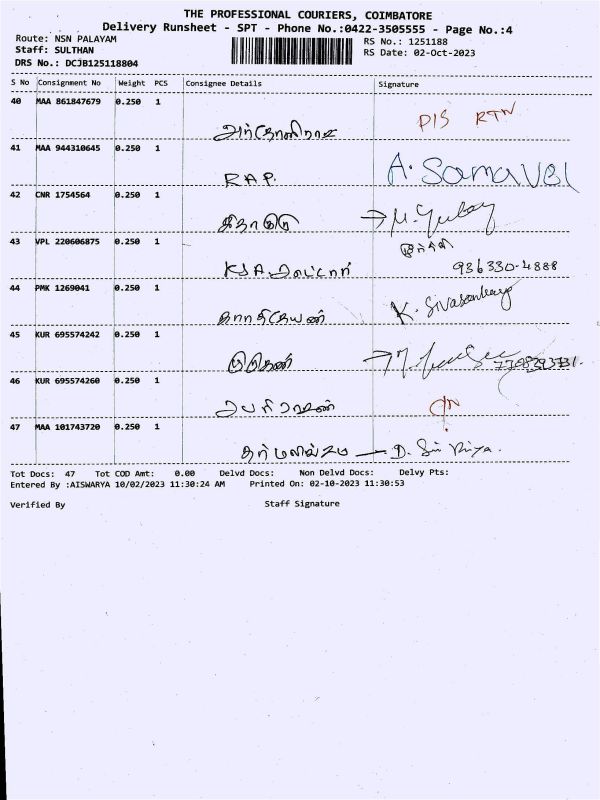 THE PROFESSIONAL COURIERS, COIMBATORE
Delivery Runsheet - SPT - Phone No.:0422-3505555 - Page No.:4
Route: NSN PALAYAM
Staff: SULTHAN
DRS No.: DCJB125118804
RS No.: 1251188
RS Date: 02-Oct-2023
S No Consignment No Weight PCS Consignee Details Signature
40 MAA 861847679 0.250 1
PIS RTN
41 MAA 944310645 0.250 1
RAP. A. Samavel
42 CNR 1754564 0.250 1
43 VPL 220606875 0.250 1
936330-4888
44 PMK 1269041 0.250 1
கார்திகேயன் K. Sivasankar
45 KUR 695574242 0.250 1
முருகன்
46 KUR 695574260 0.250 1
47 MAA 101743720 0.250 1
D. Sri Priya.
Tot Docs: 47 Tot COD Amt: 0.00 Delvd Docs: Non Delvd Docs: Delvy Pts:
Entered By :AISWARYA 10/02/2023 11:30:24 AM Printed On: 02-10-2023 11:30:53
Verified By Staff Signature